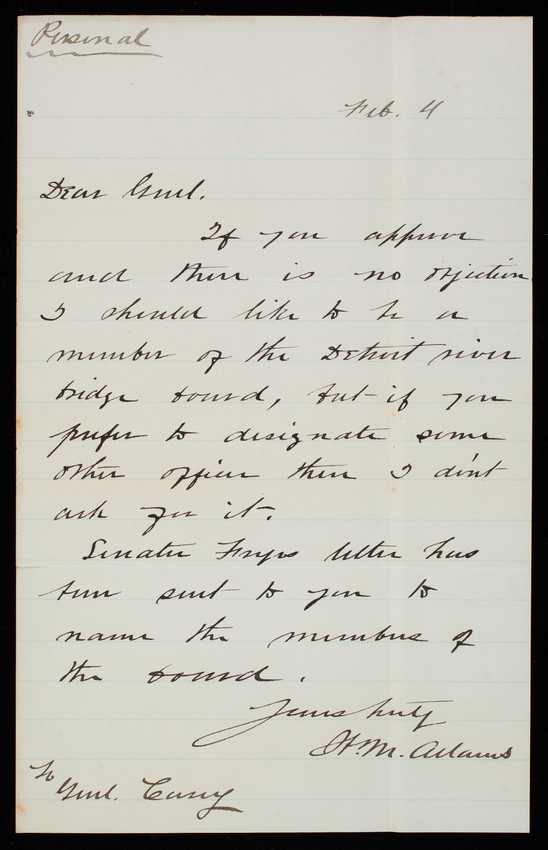 Personal
Feb. 4
Dear Genl.
If you approve
and there is no objection
I should like to be a
member of the Detroit river
bridge board, but if you
prefer to designate some
other officer then I don't
ask for it.
Senator Fryes letter has
been sent to you to
name the members of
the board.
Yours truly
H. M. Adams
To
Genl. Casey